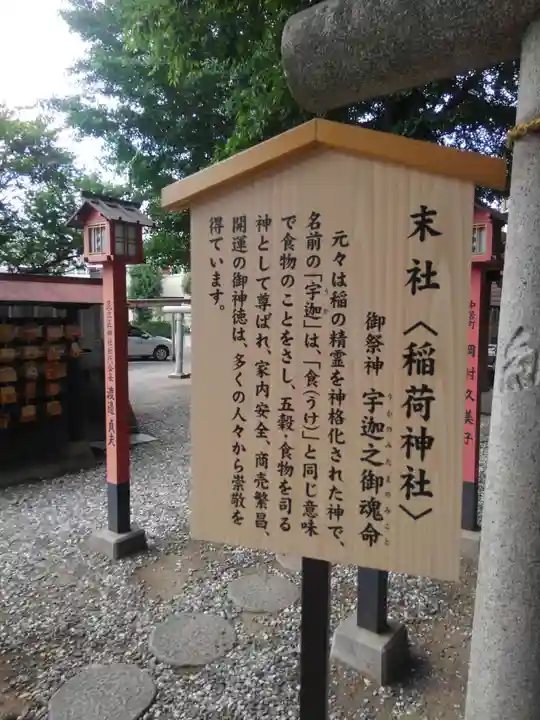 末社〈稲荷神社〉
御祭神 宇迦之御魂命
うかのみたまのみこと
元々は稲の精霊を神格化された神で、
名前の「宇迦」は、「食(うけ)」と同じ意味
うか
で食物のことをさし、五穀・食物を司る
神として尊ばれ、家内安全、商売繁昌、
開運の御神徳は、多くの人々から崇敬を
得ています。
岡村久美子
渡邉貞夫